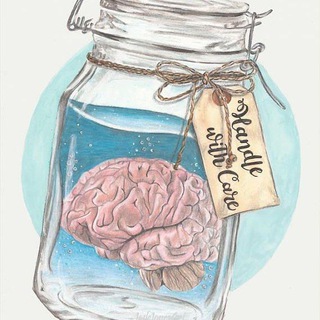 Handle
with Care